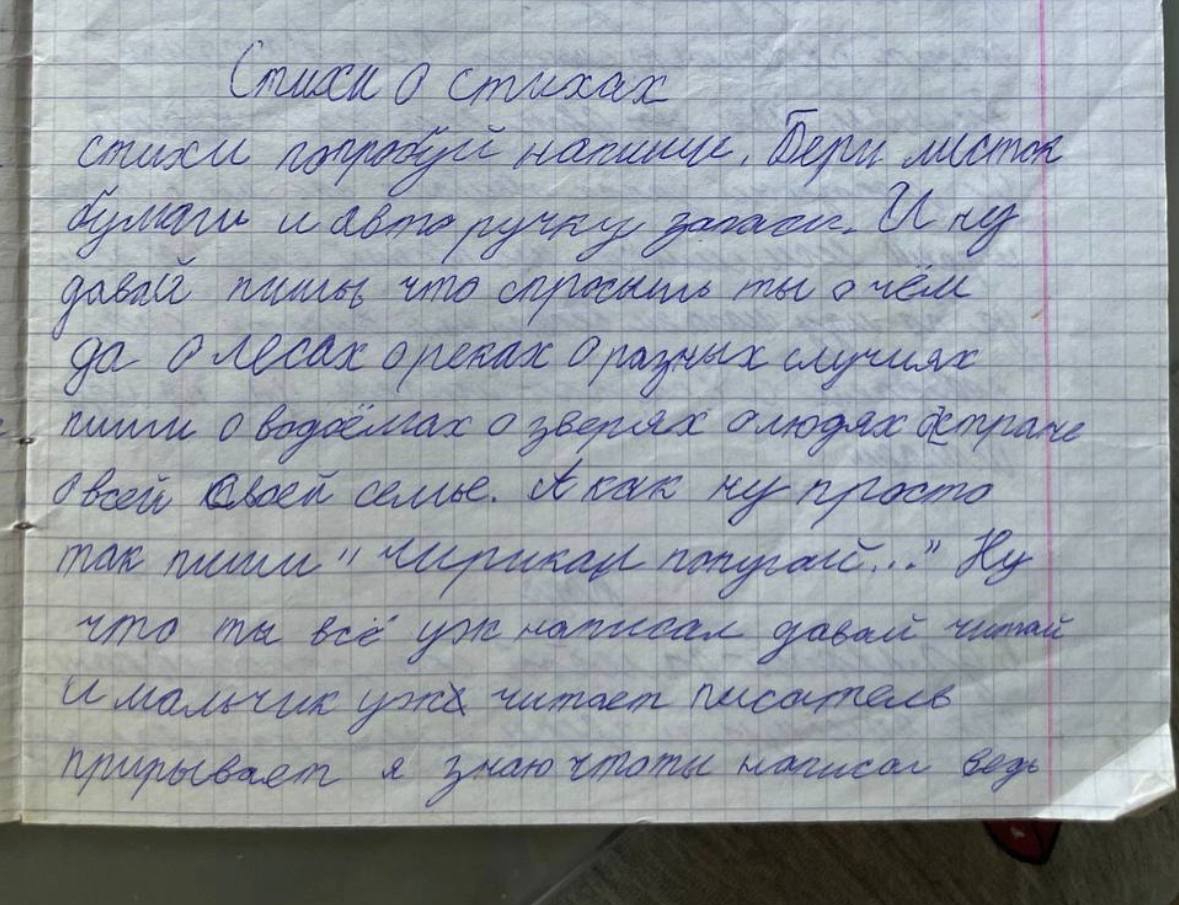 Стихи о стихах
стихи попробуй напиши. Бери листок
бумаги и авто ручку запаси. И ну
давай пишы, что спросишь ты о чём
да о лесах о реках о разных случиях
пиши о водоёмах о зверях о людях о стране
о всей своей семье. А как ну просто
так пиши "Чирикал попугай..." Ну
что ты всё уж написал давай читай
и мальчик уж читает писатель
прирывает я знаю что ты написал ведь